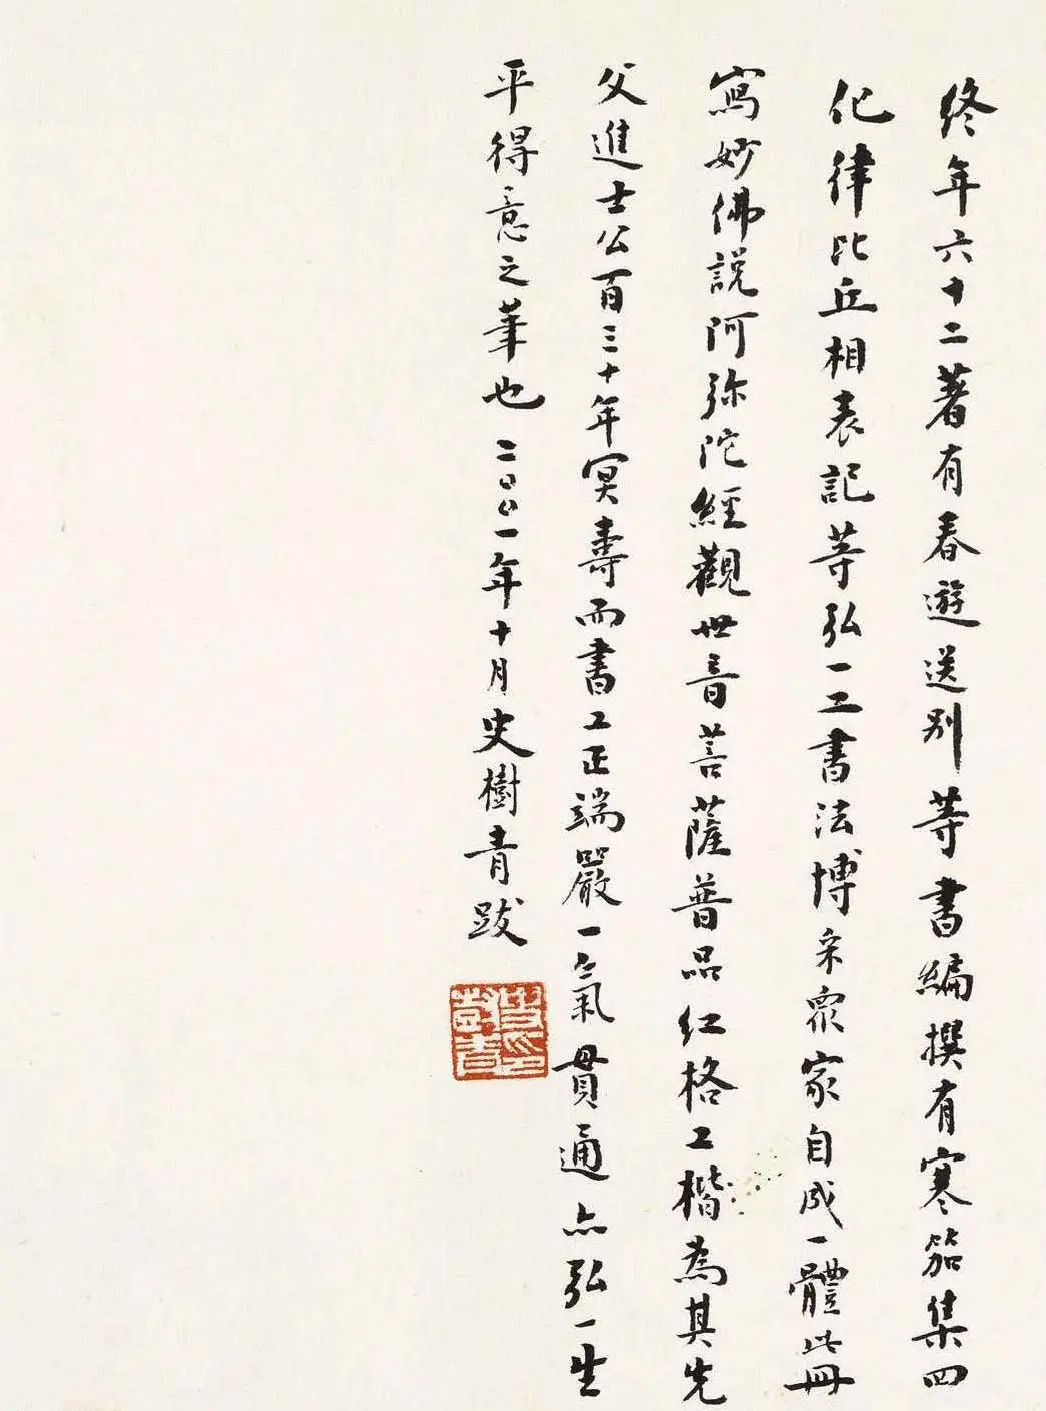 终年六十二著有春遊送别等書编撰有寒笳集四
化律比丘相表記等弘一工書法博采眾家自成一體此冊
寫妙佛説阿弥陀經觀世音菩薩普品红格工楷為其先
父進士公百三十年冥壽而書工正端嚴一氣貫通亦弘一生
平得意之筆也二〇〇一年十月史樹青跋
史樹青印